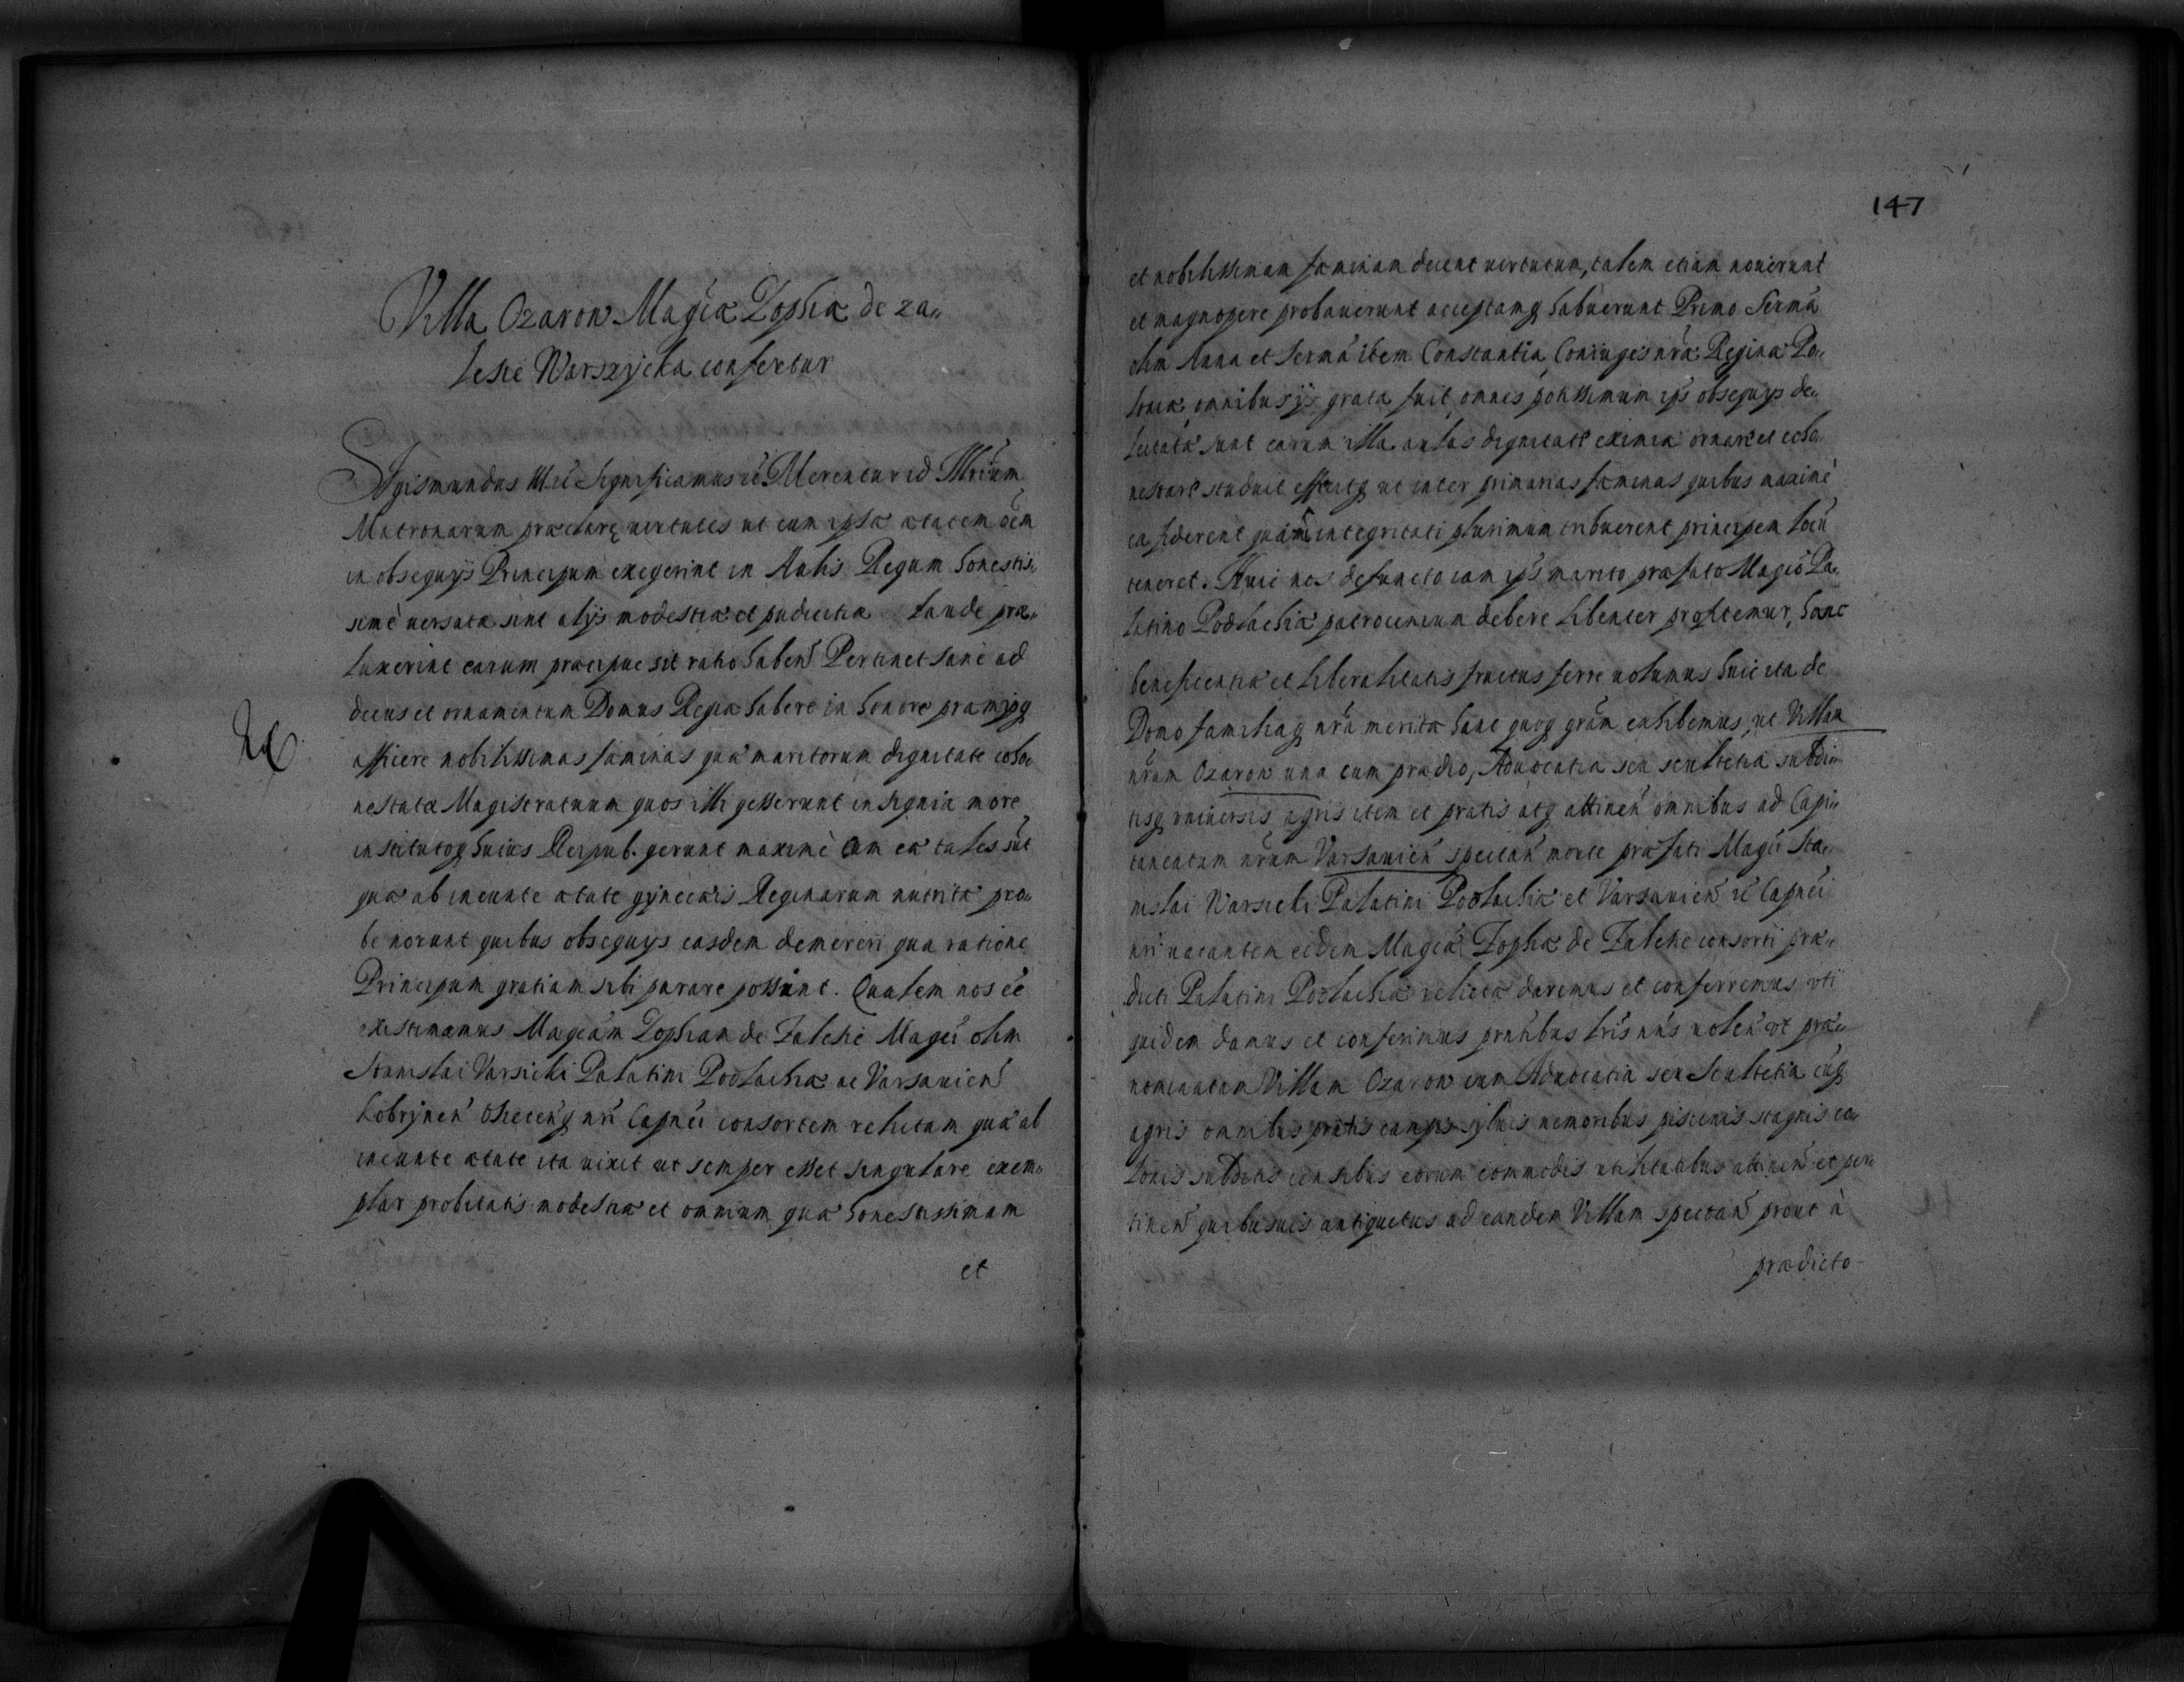 Villa Ozarow Magcæ Zophiæ de Za„
leskie Warszycka confertur
Sigismundus III etc Significamus etc Merentur id Illrium
Matronarum præclaræ virtutes ut cum ipsæ ætatem oem
in obsequijs Principum exegerint in Aulis Regum honestis„
simè versatæ sint alijs modestiæ et pudicitiæ laude præ„
luxerint earum præcipue sit ratio haben Pertinet sanè ad
decus et ornamentum Domus Regiæ habere in honore præmijsq
afficere nobilissimas fæminas quæ maritorum dignitate coho„
nestatæ Magistratuum quos illi gesserunt insignia more
institutoq huius Reipub. gerunt maximè cum eæ tales sūt
quæ ab ineunte ætate gynecæis Reginarum nutritæ pro„
be norunt quibus obsequys easdem demereri qua ratione
Principum gratiam sibi parare possint. Qualem nos eē
existimamus Magcam Zophiam de Zaleskie Magci olim
Stanislai Varsicki Palatini Podlachiæ ac Varsavien
Kobrynen Osiecenq nri Capnei consortem relictam quæ ab
ineunte ætate ita vixit ut semper esset singulare exem„
plar probitatis modestiæ et omnium quæ honestissimam
et
147
et nobilissimam fæminam decent virtutum, talem etiam noverunt
et magnopere probaverunt acceptamq habuerunt Primo Serma
olim Anna et Serma item Constantia, Coniuges nræ Reginæ Po„
loniæ omnibus ijs grata fuit omnes potissimum ips obsequys de„
lectatæ sunt earum illa aulas dignitate eximia ornare et coho„
nestare studuit effecitq ut inter primarias fæminas quibus maximè
ea fiderent quarum integritati plurimum tribuerent principem locū
teneret. Huic nos defuncto iam ips marito præfato Magco Pa„
latino Podlachiæ patrocinium debere libenter profitemur, hanc
beneficentiæ et liberalitatis fructus ferre volumus huic ita de
Domo familiaq nra meritæ hanc quoq gram exhibemus, ut Villam
nram Ozarow una cum prædio, Advocatia seu scultetia subdi„
tisq universis agris item et pratis atq attinen omnibus ad Capi„
taneatum nrum Varsavien spectan morte præfati Magci Sta„
nislai Warsicki Palatini Podlachiæ et Varsavien etc Capnei
nri vacantem eidem Magcæ Zophiæ de Zaleskie consorti præ„
dicti Palatini Podlachiæ relictæ daremus et conferremus uti
quidem damus et conferimus præntibus lris nris volen ut præ„
nominatam Villam Ozarow cum Advocatia seu Scultetia eiq
agris omnibus pratis campis sylvis nemoribus piscinis stagnis co„
lonis subditis censibus eorum commodis utilitatibus attinen et per„
tinen quibusvis antiquitus ad eandem Villam spectan prout à
prædicto